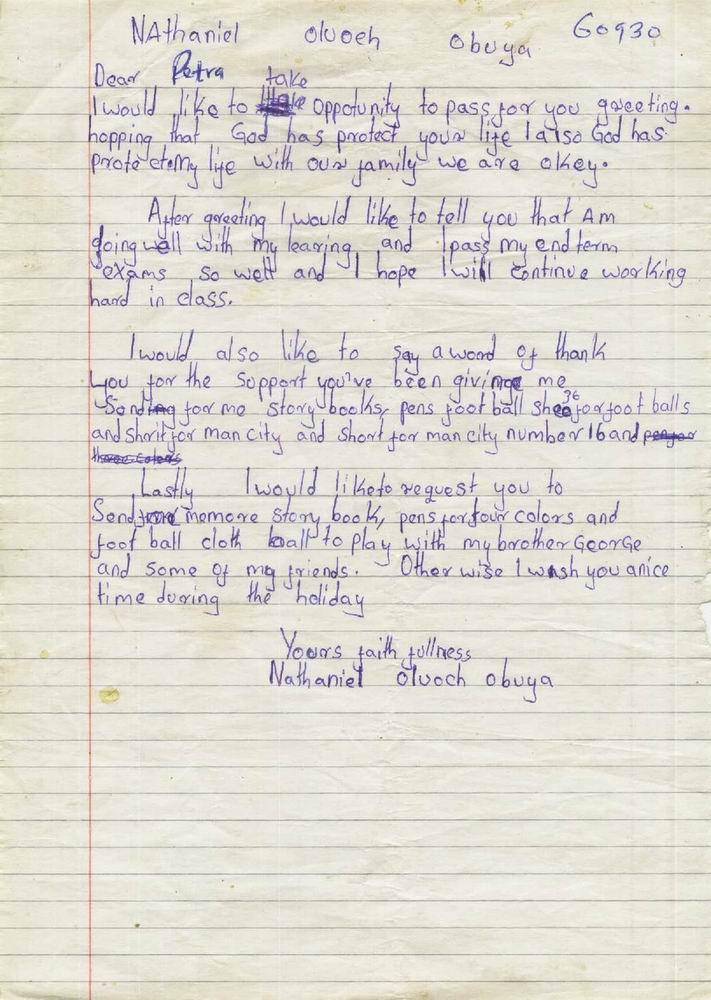 NAthaniel oluoch obuya G0930
Dear Petra take
I would like to oppotunity to pass for you greeting.
hopping that God has protect your life I also God has
protected My life with our family we are okey.
After greeting I would like to tell you that Am
going well with my learing and I pass my end term
exams so well and I hope I will continue working
hard in class.
I would also like to say a word of thank
you for the support you've been giving me
Sending for me story books, pens foot ball shoe 36 for foot balls
and shirt for man city and short for man city number 16 and pen for
three colors
Lastly I would like to request you to
Send me more story book, pens for four colors and
foot ball cloth ball to play with my brother George
and some of my friends. Other wise I wish you a nice
time during the holiday
Yours faith fullness
Nathaniel oluoch obuya